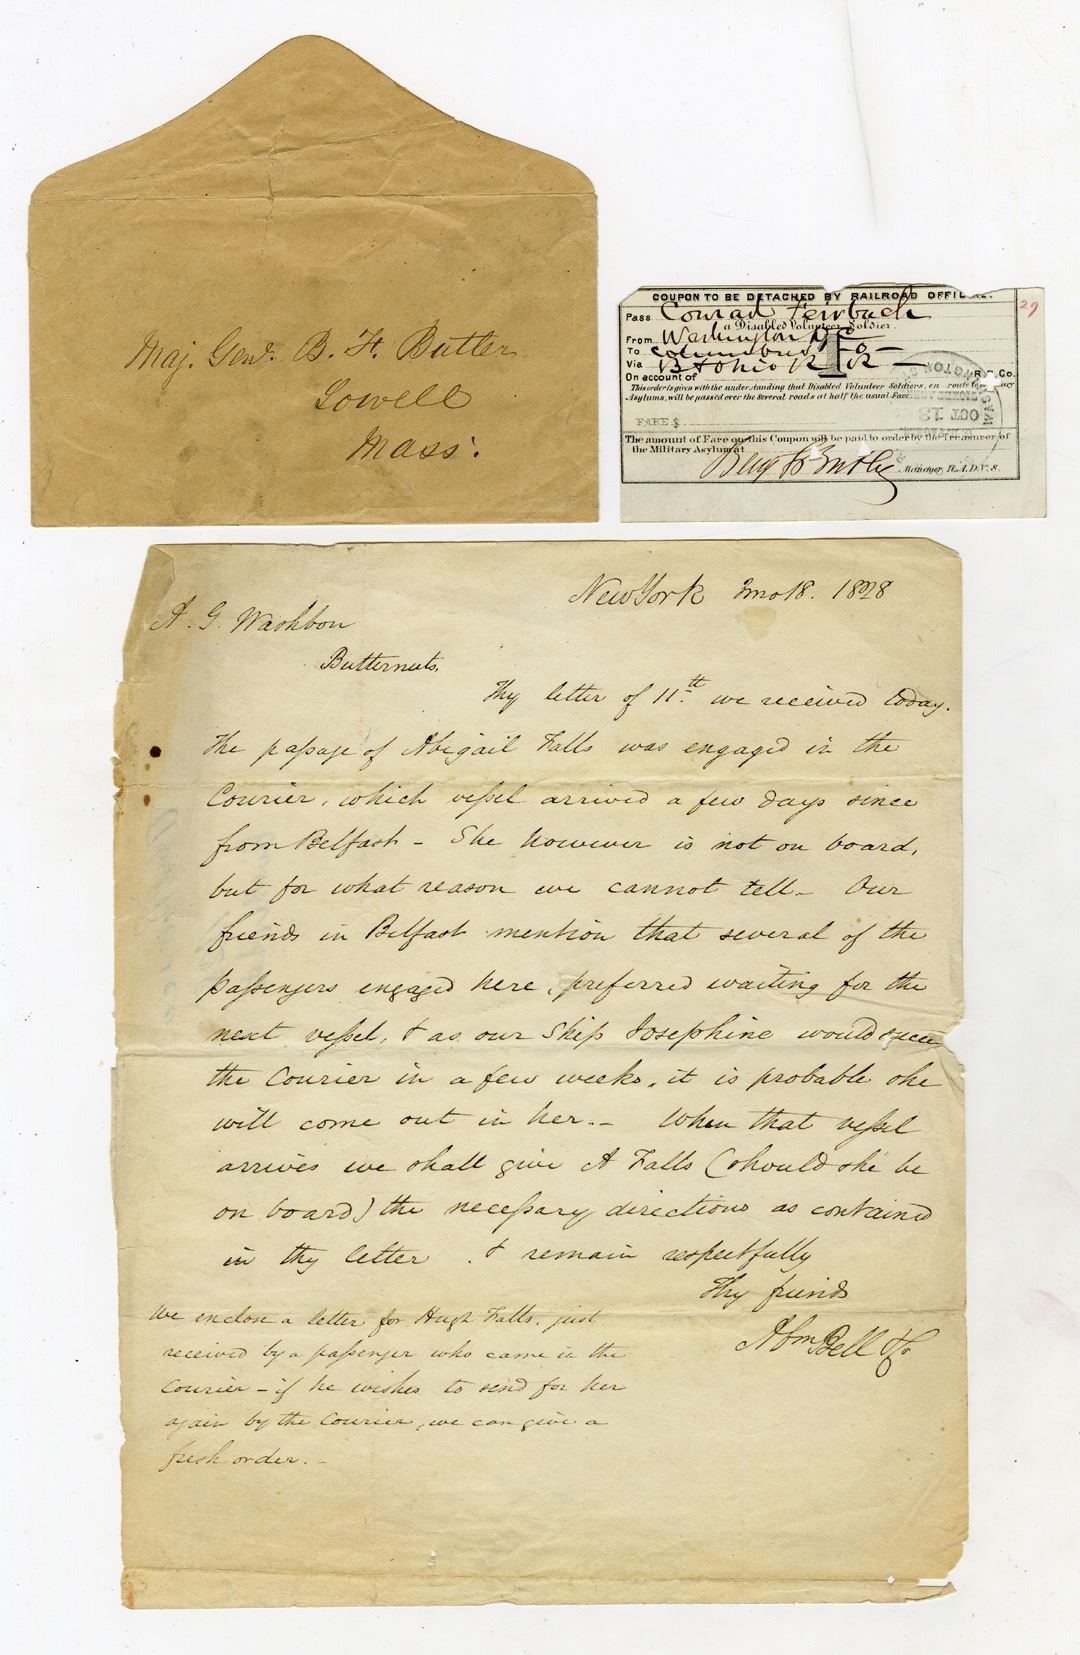 Maj. Genl. B. F. Butler
Lowell
Mass:
COUPON TO BE DETACHED BY RAILROAD
29
Pass Conrad Feirbach
a Disabled Volunteer Soldier.
From Washington DC
To Columbus O
Via B & Ohio R R
On account of R. R. Co.
This order is given with the understanding that Disabled Volunteer Soldiers, en route to Military
Asylums, will be passed over the several roads at half the usual Fare.
OCT 13
FARE $
The amount of Fare on this Coupon will be paid to order by the Treasurer of
the Military Asylum at
Benj F Butler Manager, N.A.D.V.S.
New York 3mo 18. 1828
A. G. Washbon
Butternuts.
Thy letter of 11th we received today.
The passage of Abigail Falls was engaged in the
Courier, which vessel arrived a few days since
from Belfast - She however is not on board,
but for what reason we cannot tell - Our
friends in Belfast mention that several of the
passengers engaged here, preferred waiting for the
next vessel, & as our Ship Josephine would
the Courier in a few weeks, it is probable she
will come out in her. - When that vessel
arrives we shall give A Falls (should she be
on board) the necessary directions as contained
in thy letter. & remain respectfully
Thy friends
Abm Bell & Co
We enclose a letter for Hugh Falls, just
received by a passenger who came in the
Courier - if he wishes to send for her
again by the Courier, we can give a
fresh order. -